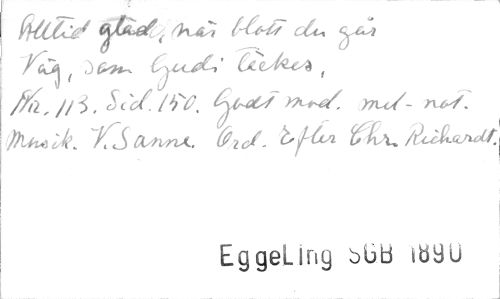 Alltid glad, når blott du går
Väg, som Gudi täckes,
No. 113. Sid. 150. Godt mod. mel-not.
Musik. V. Sanne. Ord. Efter Chr. Richardt.
EggeLing SGB 1890